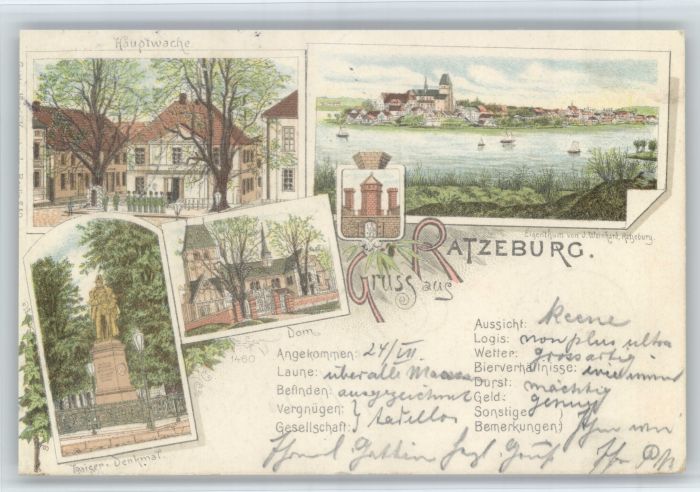 Hauptwache.
Eigenthum von J. Weinhard, Ratzeburg.
Gruss aus RATZEBURG.
Dom.
1460
Kaiser-Denkmal.
Angekommen: 24/VII.
Laune: über alle Massen
Befinden: ausgezeichnet
Vergnügen: } tadellos
Gesellschaft: }
Aussicht: keene
Logis: non plus ultra
Wetter: grossartig.
Bierverhältnisse: wie immer
Durst: mächtig
Geld: genug
Sonstige
Bemerkungen}
Gattin
Gruß